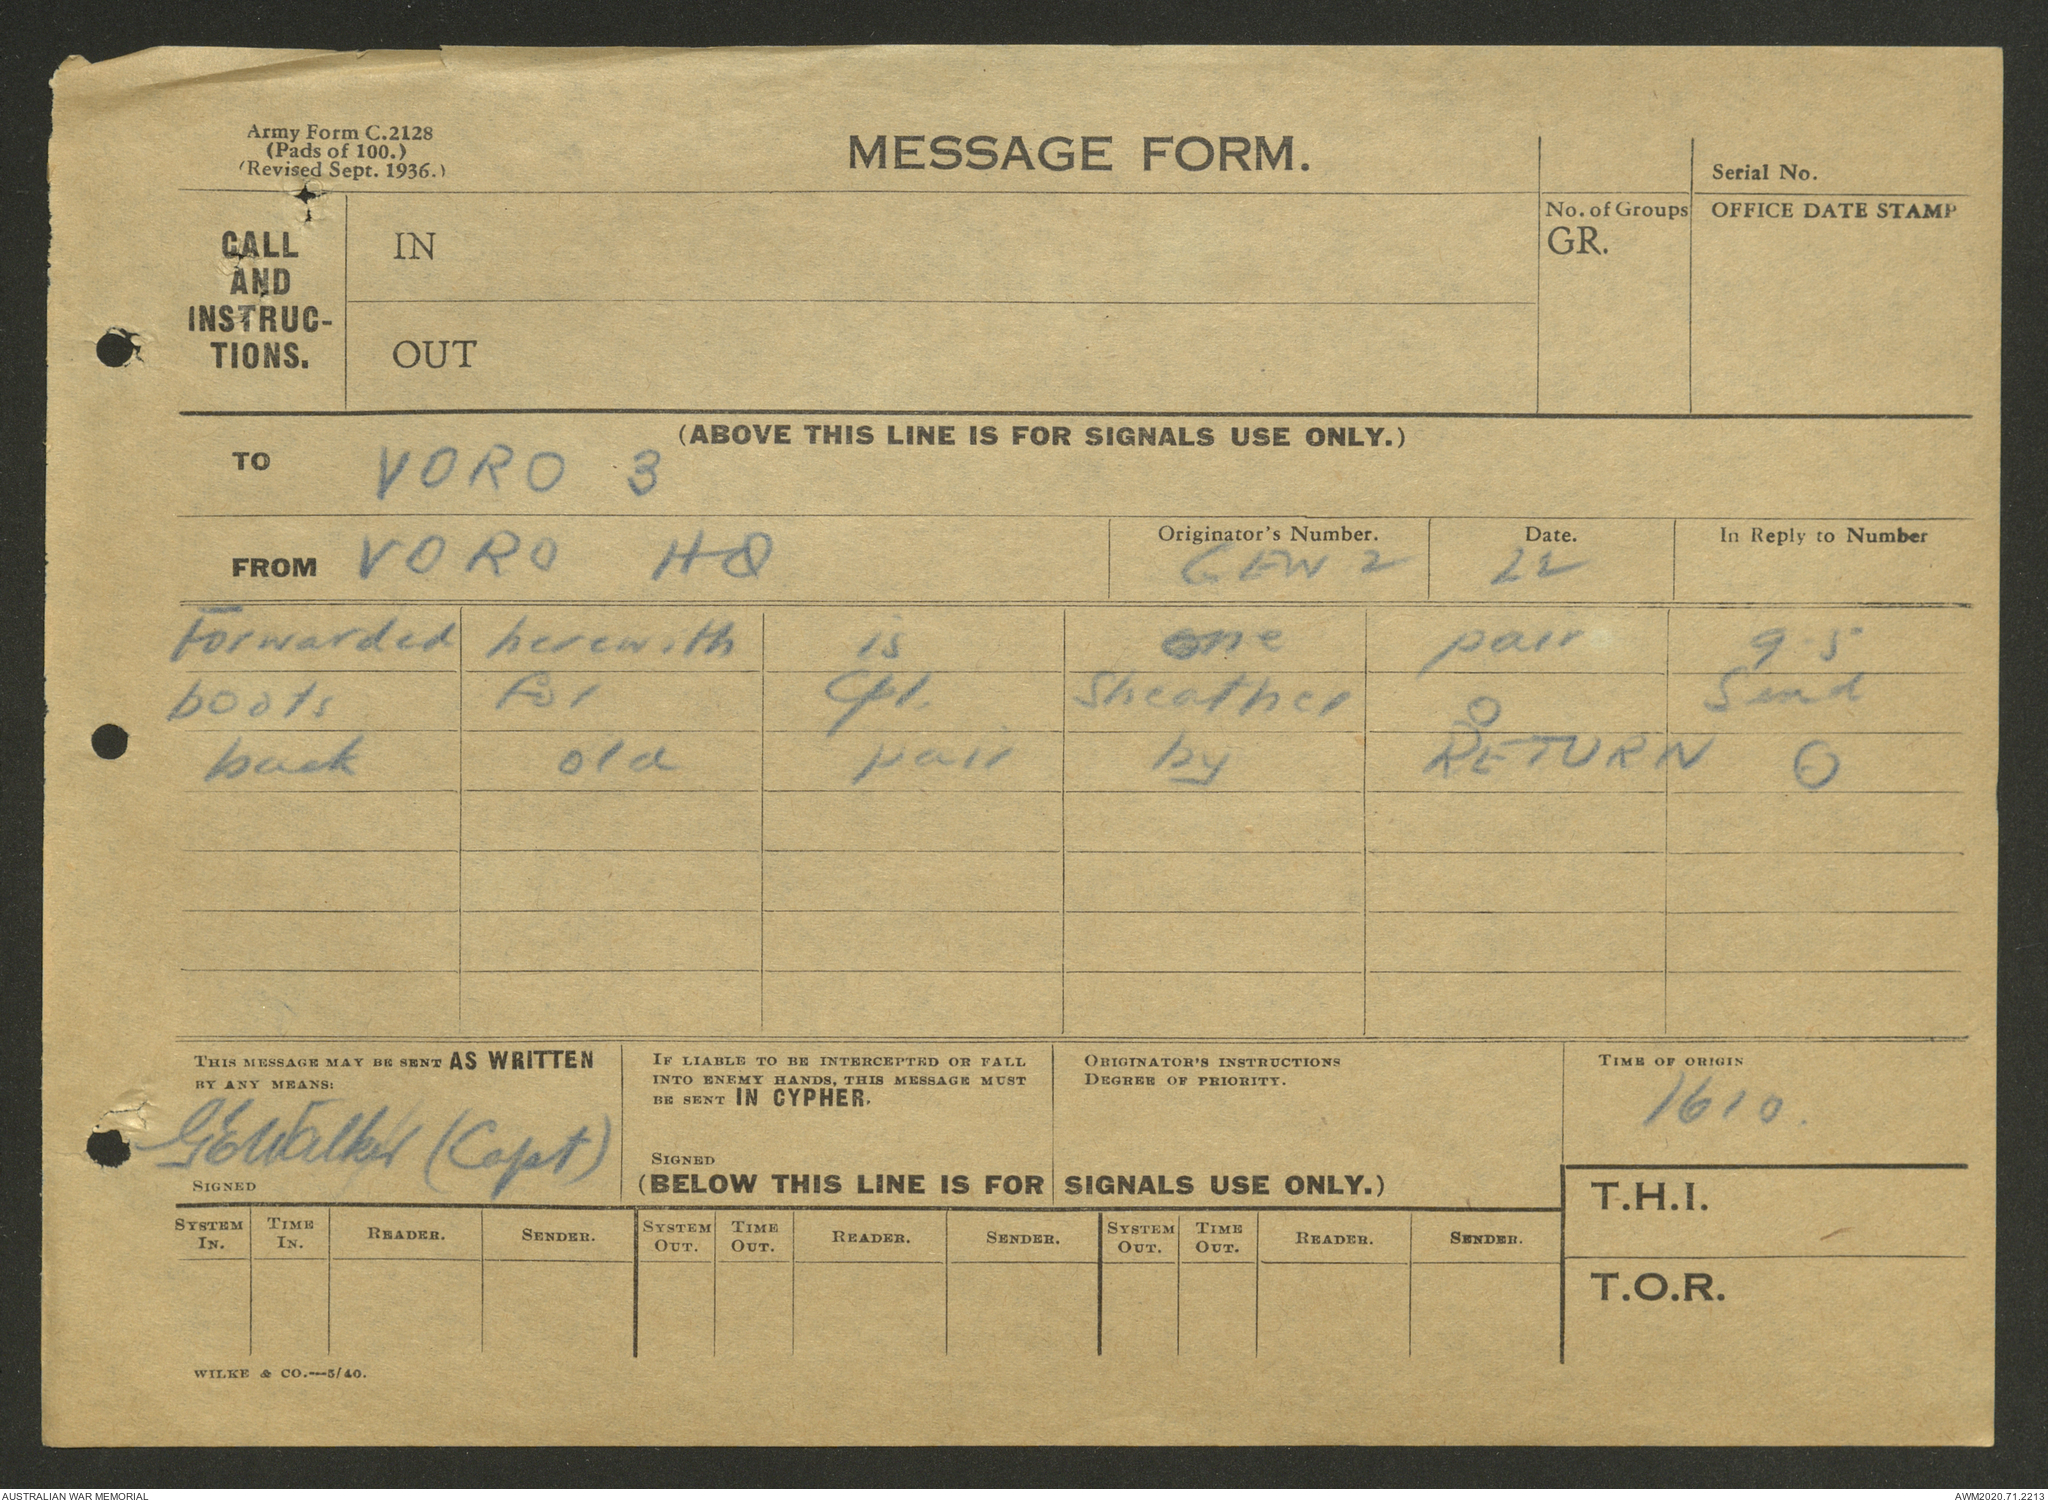 Army Form C.2128
(Pads of 100.)
(Revised Sept. 1936.)
MESSAGE FORM.
Serial No.
CALL
AND
INSTRUC-
TIONS.
IN
OUT
No. of Groups
GR.
OFFICE DATE STAMP
(ABOVE THIS LINE IS FOR SIGNALS USE ONLY.)
TO VORO 3
FROM VORO HQ
Originator's Number.
GEW 2
Date.
22
In Reply to Number
Forwarded herewith is one pair 9-5
boots for Cpl. Sheather O Send
back old pair by RETURN O
THIS MESSAGE MAY BE SENT AS WRITTEN
BY ANY MEANS:
GEWalker (Capt)
SIGNED
IF LIABLE TO BE INTERCEPTED OR FALL
INTO ENEMY HANDS, THIS MESSAGE MUST
BE SENT IN CYPHER.
SIGNED
ORIGINATOR'S INSTRUCTIONS
DEGREE OF PRIORITY.
TIME OF ORIGIN
1610.
(BELOW THIS LINE IS FOR SIGNALS USE ONLY.)
T.H.I.
T.O.R.
SYSTEM IN. TIME IN. READER. SENDER. SYSTEM OUT. TIME OUT. READER. SENDER. SYSTEM OUT. TIME OUT. READER. SENDER.
WILKE & CO.—5/40.
AUSTRALIAN WAR MEMORIAL
AWM2020.71.2213